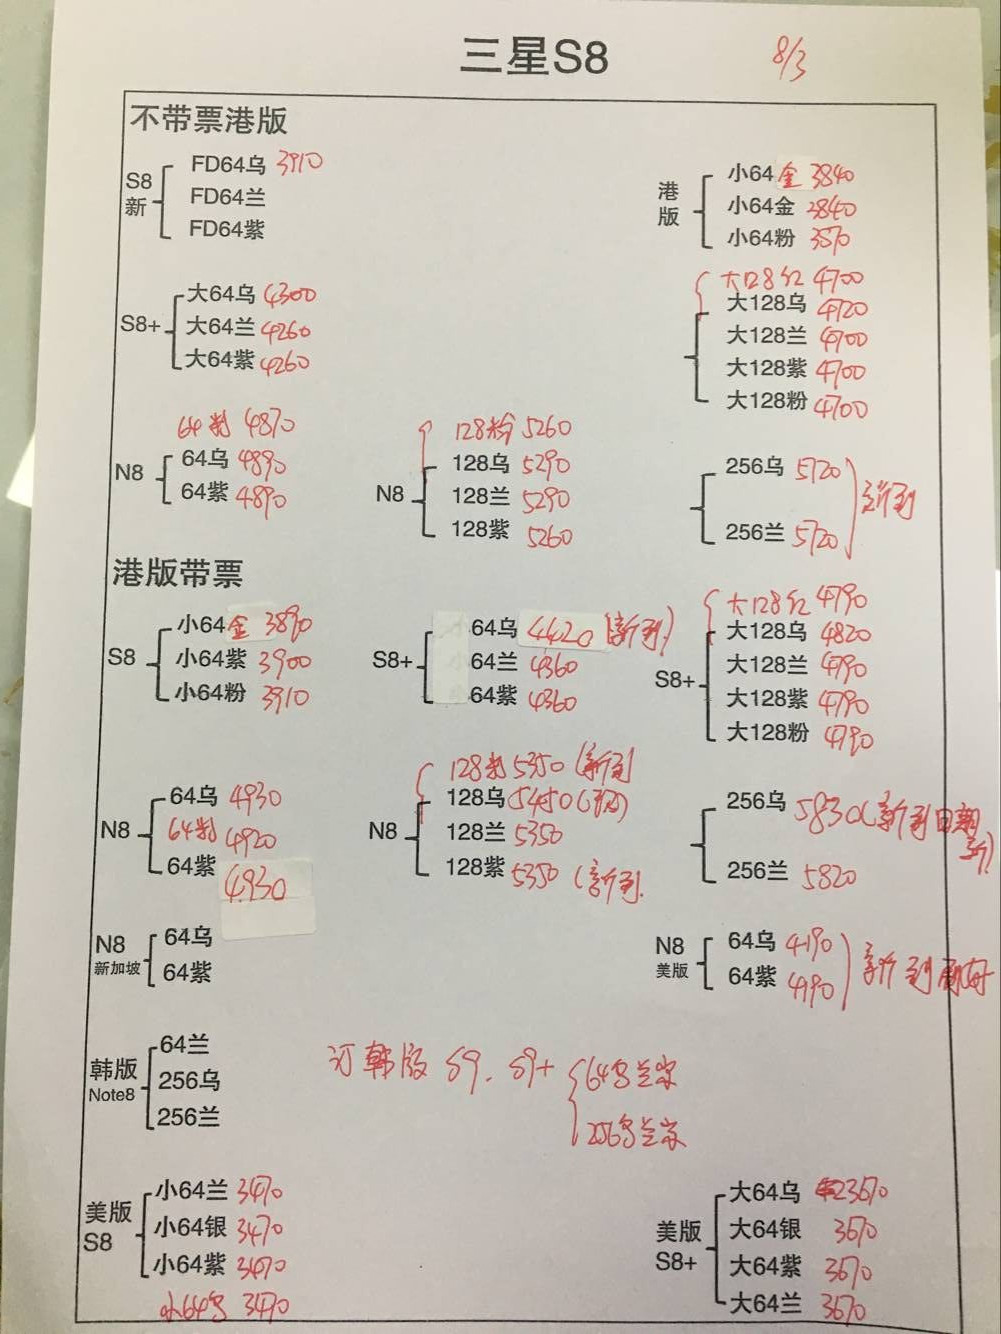 三星S8
8/3
不带票港版
S8
新
FD64乌 3910
FD64兰
FD64紫
港
版
小64金 3840
小64金 3840
小64粉 3570
S8+
大64乌 4300
大64兰 4260
大64紫 4260
大128红 4700
大128乌 4720
大128兰 4700
大128紫 4700
大128粉 4700
N8
64粉 4870
64乌 4890
64紫 4890
N8
128粉 5260
128乌 5290
128兰 5290
128紫 5260
256乌 5720
256兰 5720
新到
港版带票
S8
小64金 3890
小64紫 3900
小64粉 3910
S8+
64乌 4420 (新到)
64兰 4360
64紫 4360
S8+
大128红 4790
大128乌 4820
大128兰 4790
大128紫 4790
大128粉 4790
N8
64乌 4930
64粉 4920
64紫 4930
N8
128粉 5350 (新到
128乌 5450
128兰 5350
128紫 5350 (新到.
256乌 5830 (新到日期
新)
256兰 5820
N8
新加坡
64乌
64紫
N8
美版
64乌 4190
64紫 4190
新到
韩版
Note8
64兰
256乌
256兰
订韩版 S9. S9+
64乌兰紫
256乌兰紫
美版
S8
小64兰 3470
小64银 3470
小64紫 3470
小64乌 3470
美版
S8+
大64乌 3670
大64银 3670
大64紫 3670
大64兰 3670